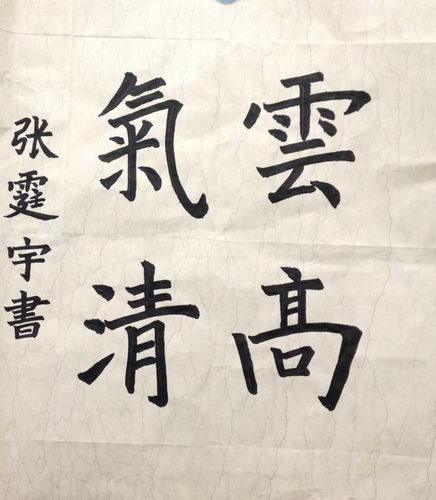 雲髙
氣清
张霆宇書